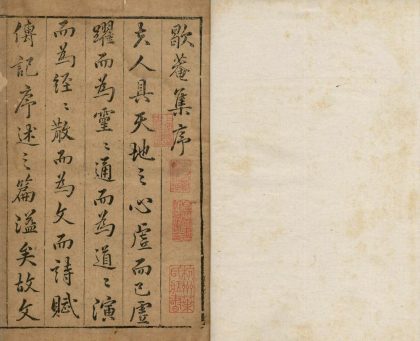 歇菴集序
夫人具天地之心虛而已虛
躍而為靈々通而為道々演
而為經々散而為文而詩賦
傳記序述之篇溢矣故文